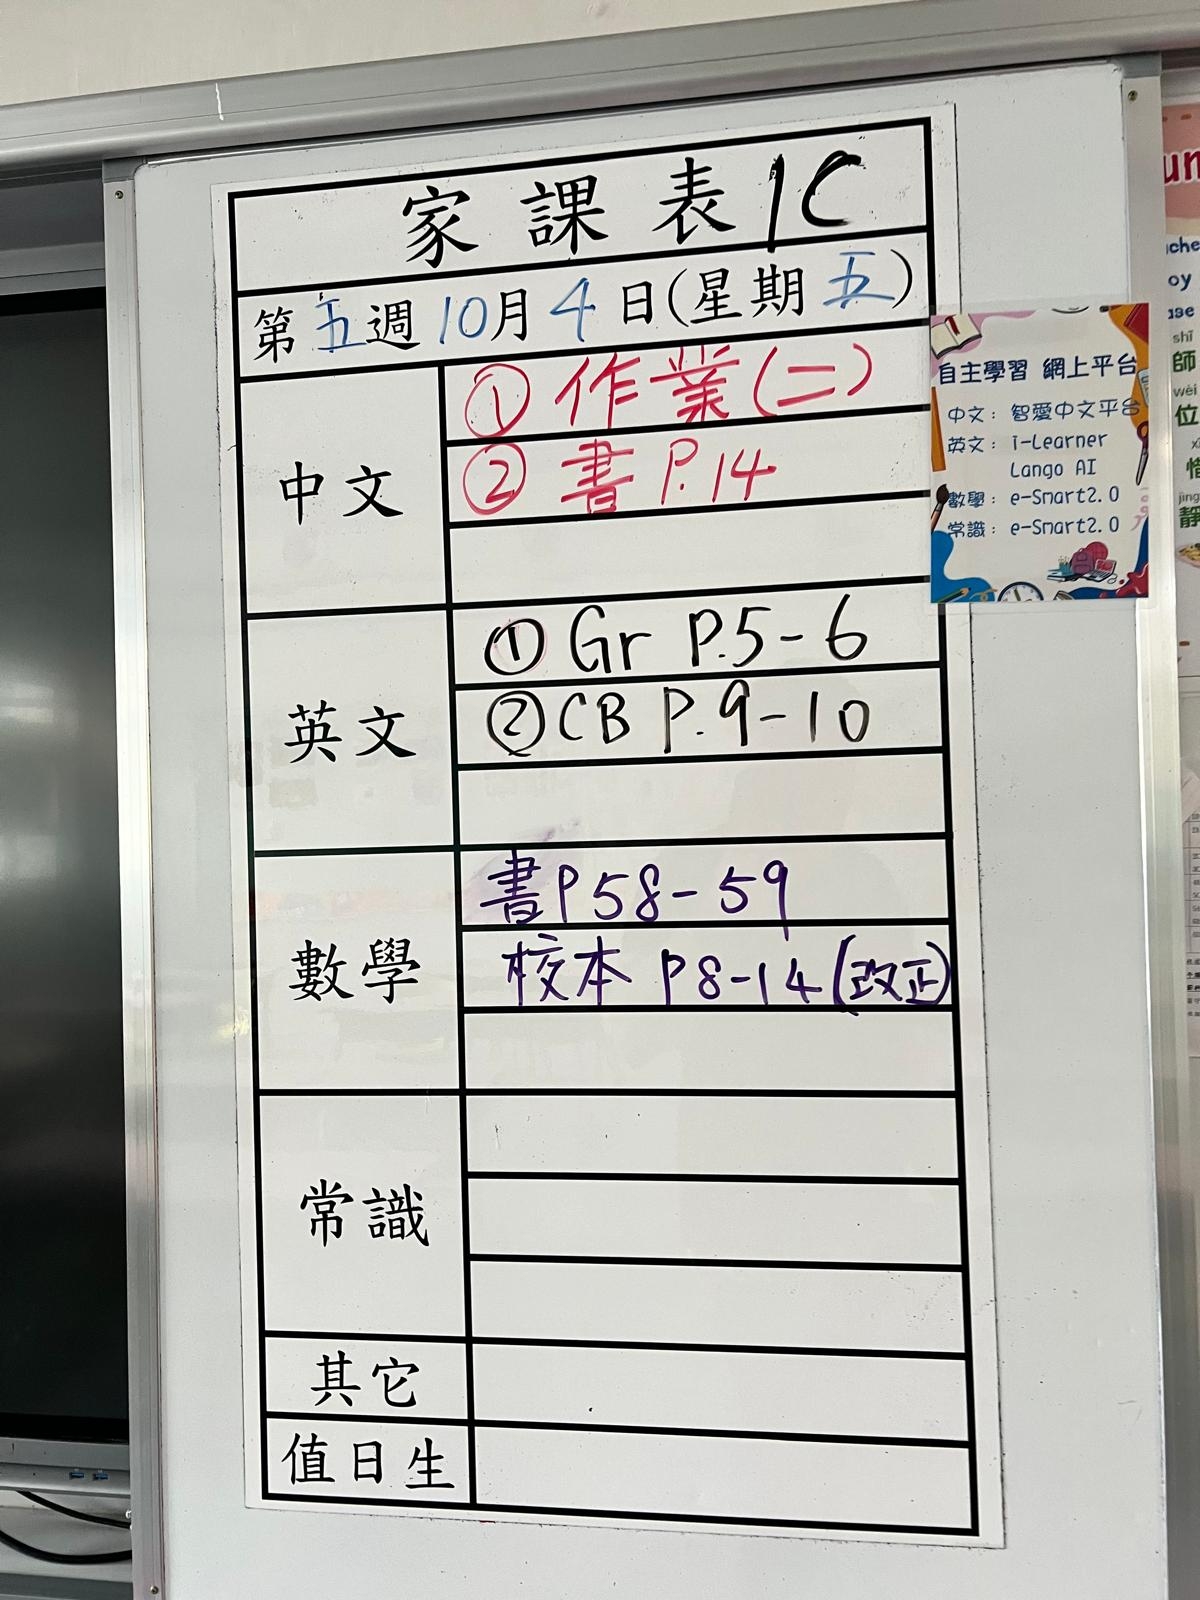 家課表1C
第五週10月4日(星期五)
中文
① 作業(二)
② 書 P.14
英文
① Gr P.5-6
② CB P.9-10
數學
書P58-59
校本 P8-14(改正)
常識
其它
值日生
自主學習 網上平台
中文: 智愛中文平台
英文: i-Learner
Lango AI
數學: e-Smart2.0
常識: e-Smart2.0
shī
師
wèi
位
惜
jìng
靜